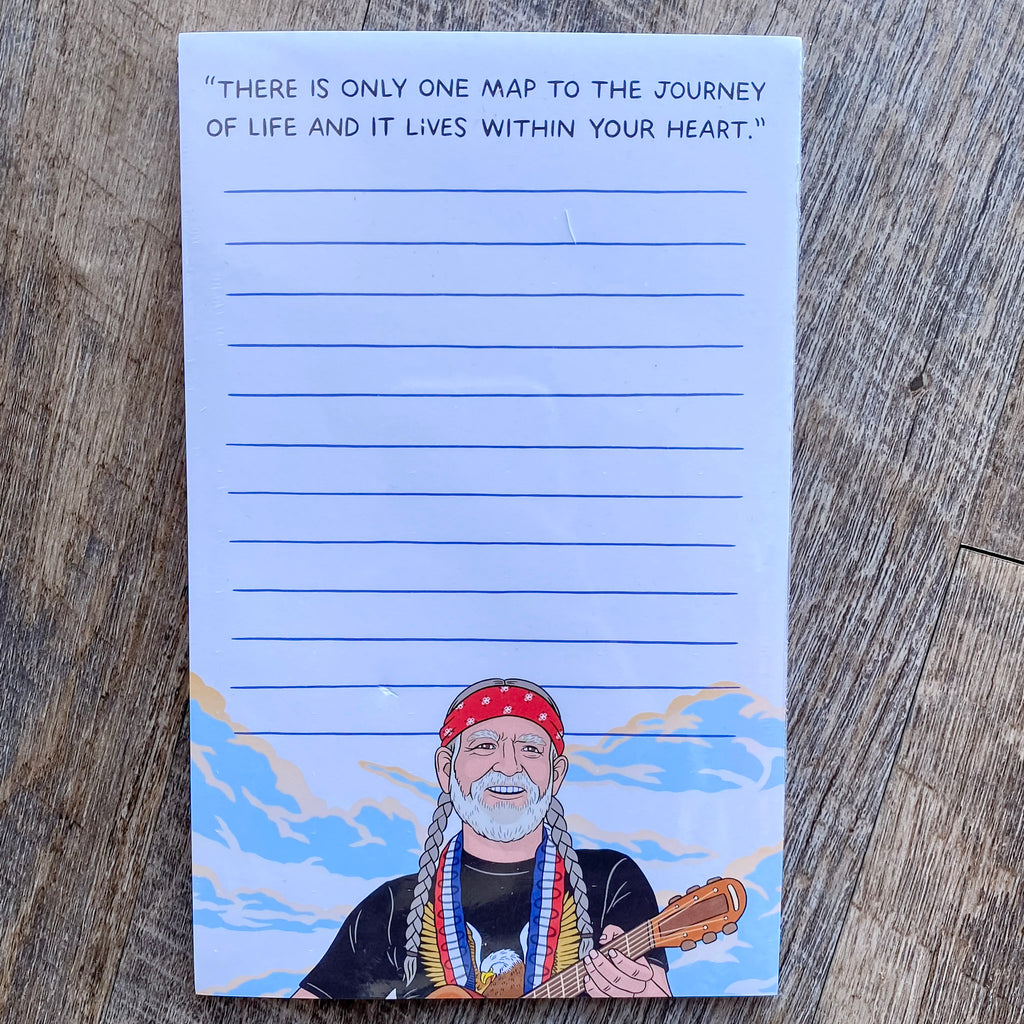 “THERE IS ONLY ONE MAP TO THE JOURNEY
OF LIFE AND IT LiVES WITHIN YOUR HEART.”